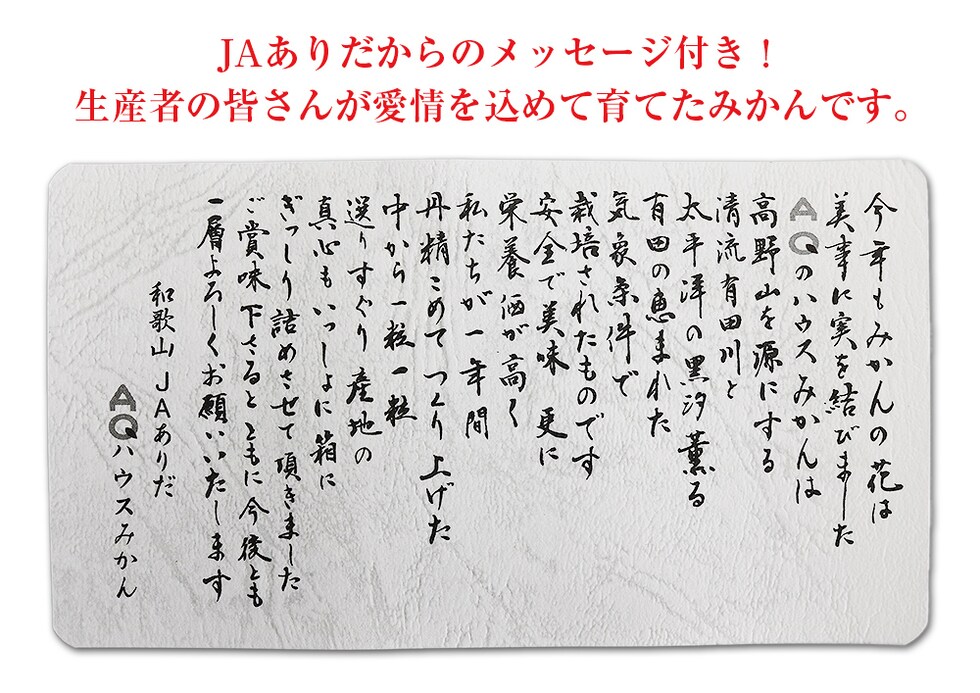 JAありだからのメッセージ付き！
生産者の皆さんが愛情を込めて育てたみかんです。
今年もみかんの花は
美事に実を結びました
AQのハウスみかんは
高野山を源にする
清流有田川と
太平洋の黒汐薫る
有田の恵まれた
気象条件で
栽培されたものです
安全で美味 更に
栄養価が高く
私たちが一年間
丹精こめてつくり上げた
中から一粒一粒
選りすぐり産地の
真心もいっしょに箱に
ぎっしり詰めさせて頂きました
ご賞味下さるとともに今後とも
一層よろしくお願いいたします
和歌山 JAありだ
AQハウスみかん